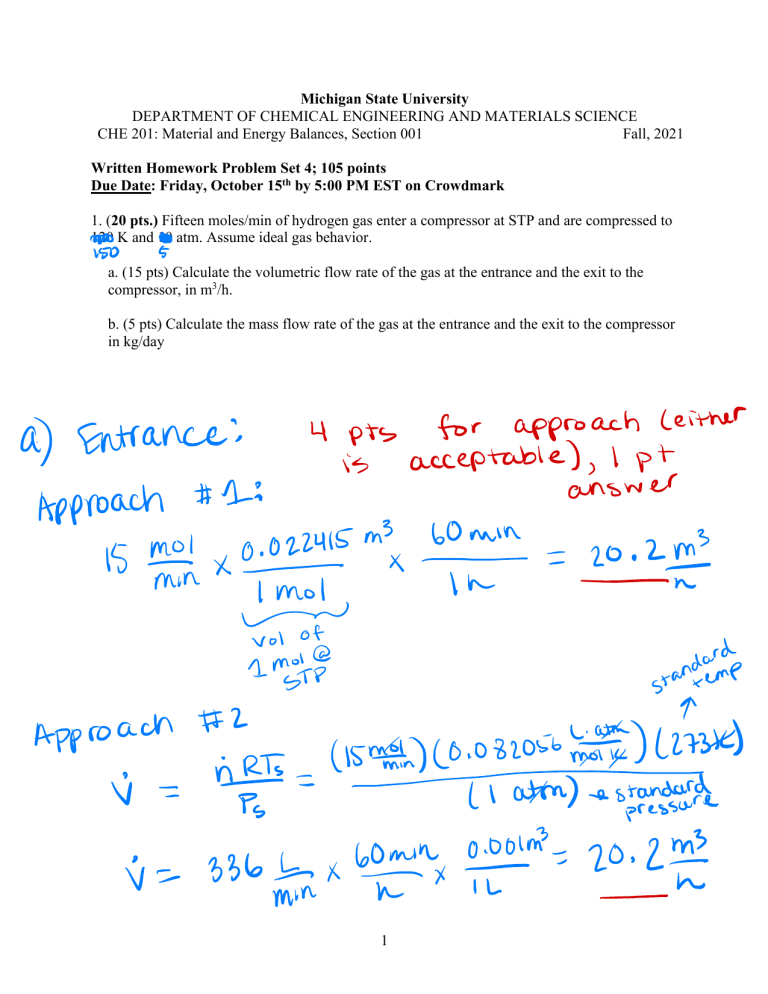 Michigan State University
DEPARTMENT OF CHEMICAL ENGINEERING AND MATERIALS SCIENCE
CHE 201: Material and Energy Balances, Section 001 Fall, 2021
Written Homework Problem Set 4; 105 points
Due Date: Friday, October 15th by 5:00 PM EST on Crowdmark
1. (20 pts.) Fifteen moles/min of hydrogen gas enter a compressor at STP and are compressed to
K and atm. Assume ideal gas behavior.
150 5
a. (15 pts) Calculate the volumetric flow rate of the gas at the entrance and the exit to the
compressor, in m³/h.
b. (5 pts) Calculate the mass flow rate of the gas at the entrance and the exit to the compressor
in kg/day
a) Entrance: 4 pts for approach (either
is acceptable), 1 pt
answer
Approach #1:
15 mol/min x 0.022415 m³/1 mol x 60 min/1 h = 20.2 m³/h
vol of
1 mol @
STP
standard
temp
Approach #2
V̇ = ṅRTs/Ps = (15 mol/min)(0.082056 L·atm/mol K)(273K)/(1 atm) ← standard
pressure
V̇ = 336 L/min x 60 min/h x 0.001m³/1L = 20.2 m³/h
1